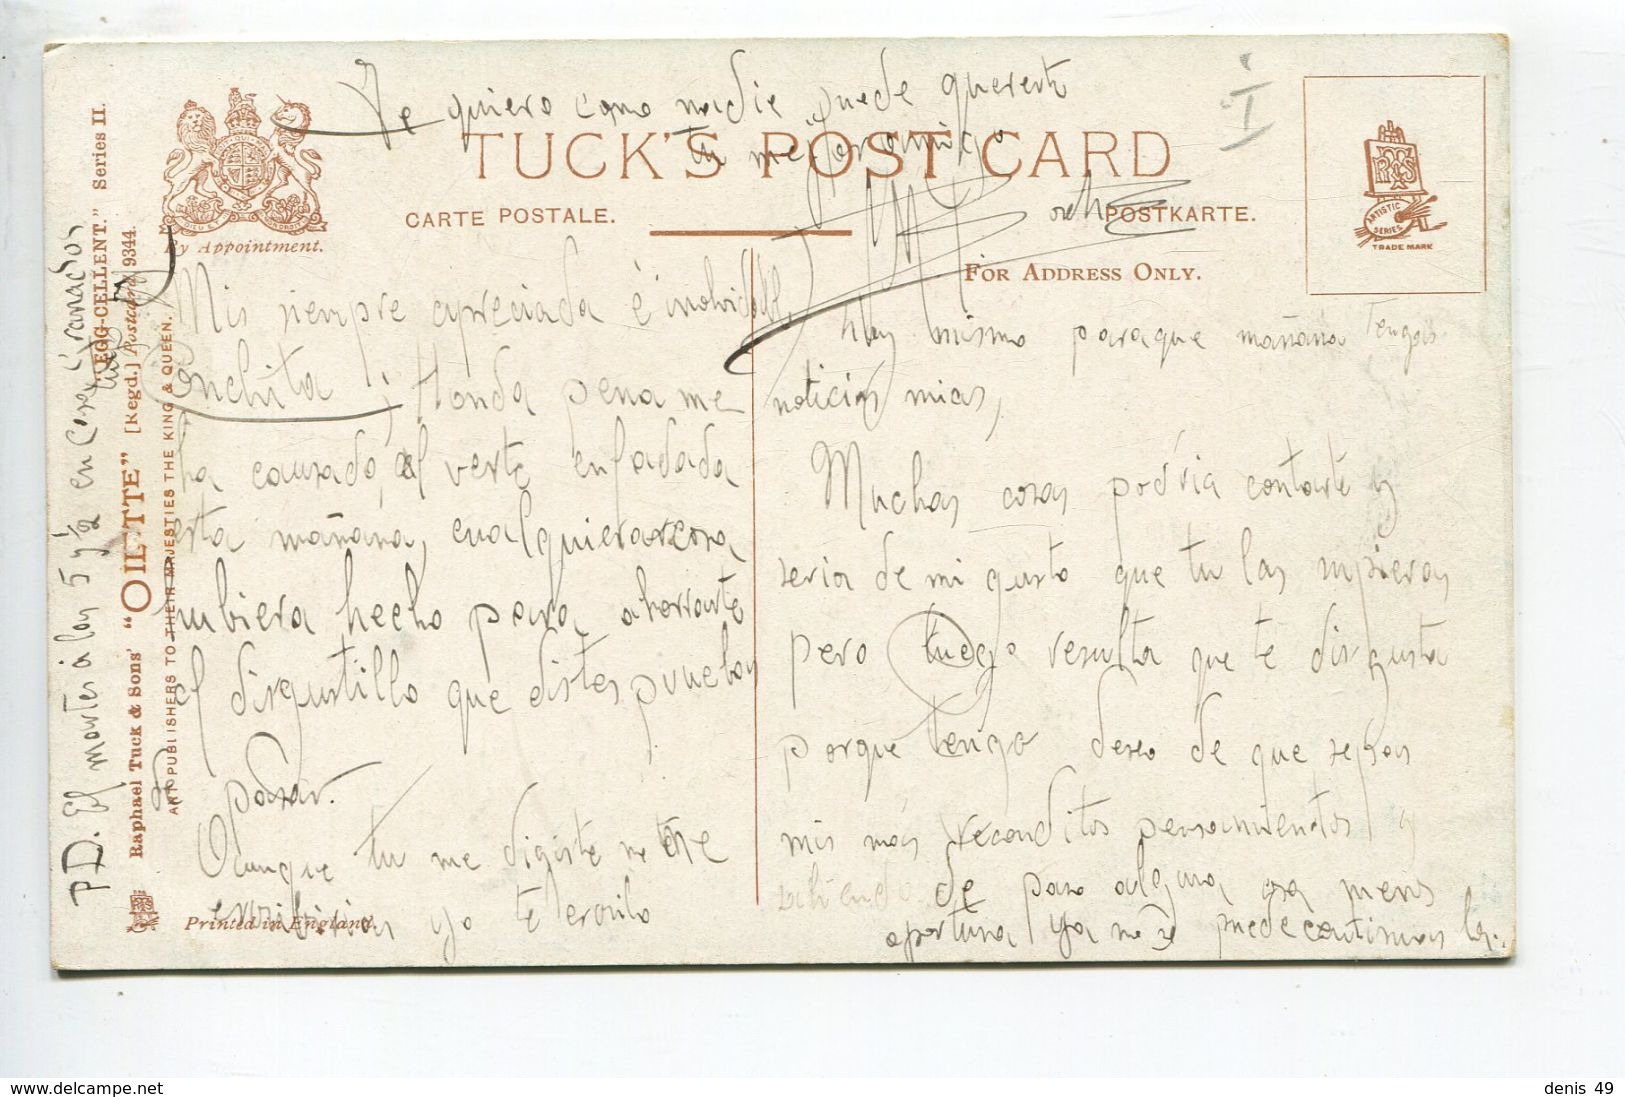 Te quiero como nadie puede quererte
tu me
I
TUCK'S POST CARD
CARTE POSTALE.
POSTKARTE.
FOR ADDRESS ONLY.
By Appointment.
ARTISTIC
SERIES
TRADE MARK
"EGG-CELLENT." Series II.
Raphael Tuck & Sons' "OILETTE" [Regd.] Postcard 9344.
ART PUBLISHERS TO THEIR MAJESTIES THE KING & QUEEN.
Printed in England.
PD. El martes á las 5 y ½ en Casa Granados
Mis siempre apreciada é inolvidable
Conchita; Honda pena me
ha causado, al verte enfadada
esta mañana, cualquiera cosa
hubiera hecho para ahorrarte
el disgustillo que distes pues las
pasar.
Aunque tu me digiste no me
escribirias yo te escribo
hoy mismo paraque mañana Tengas
noticias mias,
Muchas cosas podria contarte y
seria de mi gusto que tu las supieras
pero luego resulta que te disgusta
porque tengo deseo de que sepas
mis más reconditos pensamientos y
sabiendo de para alguna cosa menos
oportuna ya no se puede continuar la
www.delcampe.net
denis 49